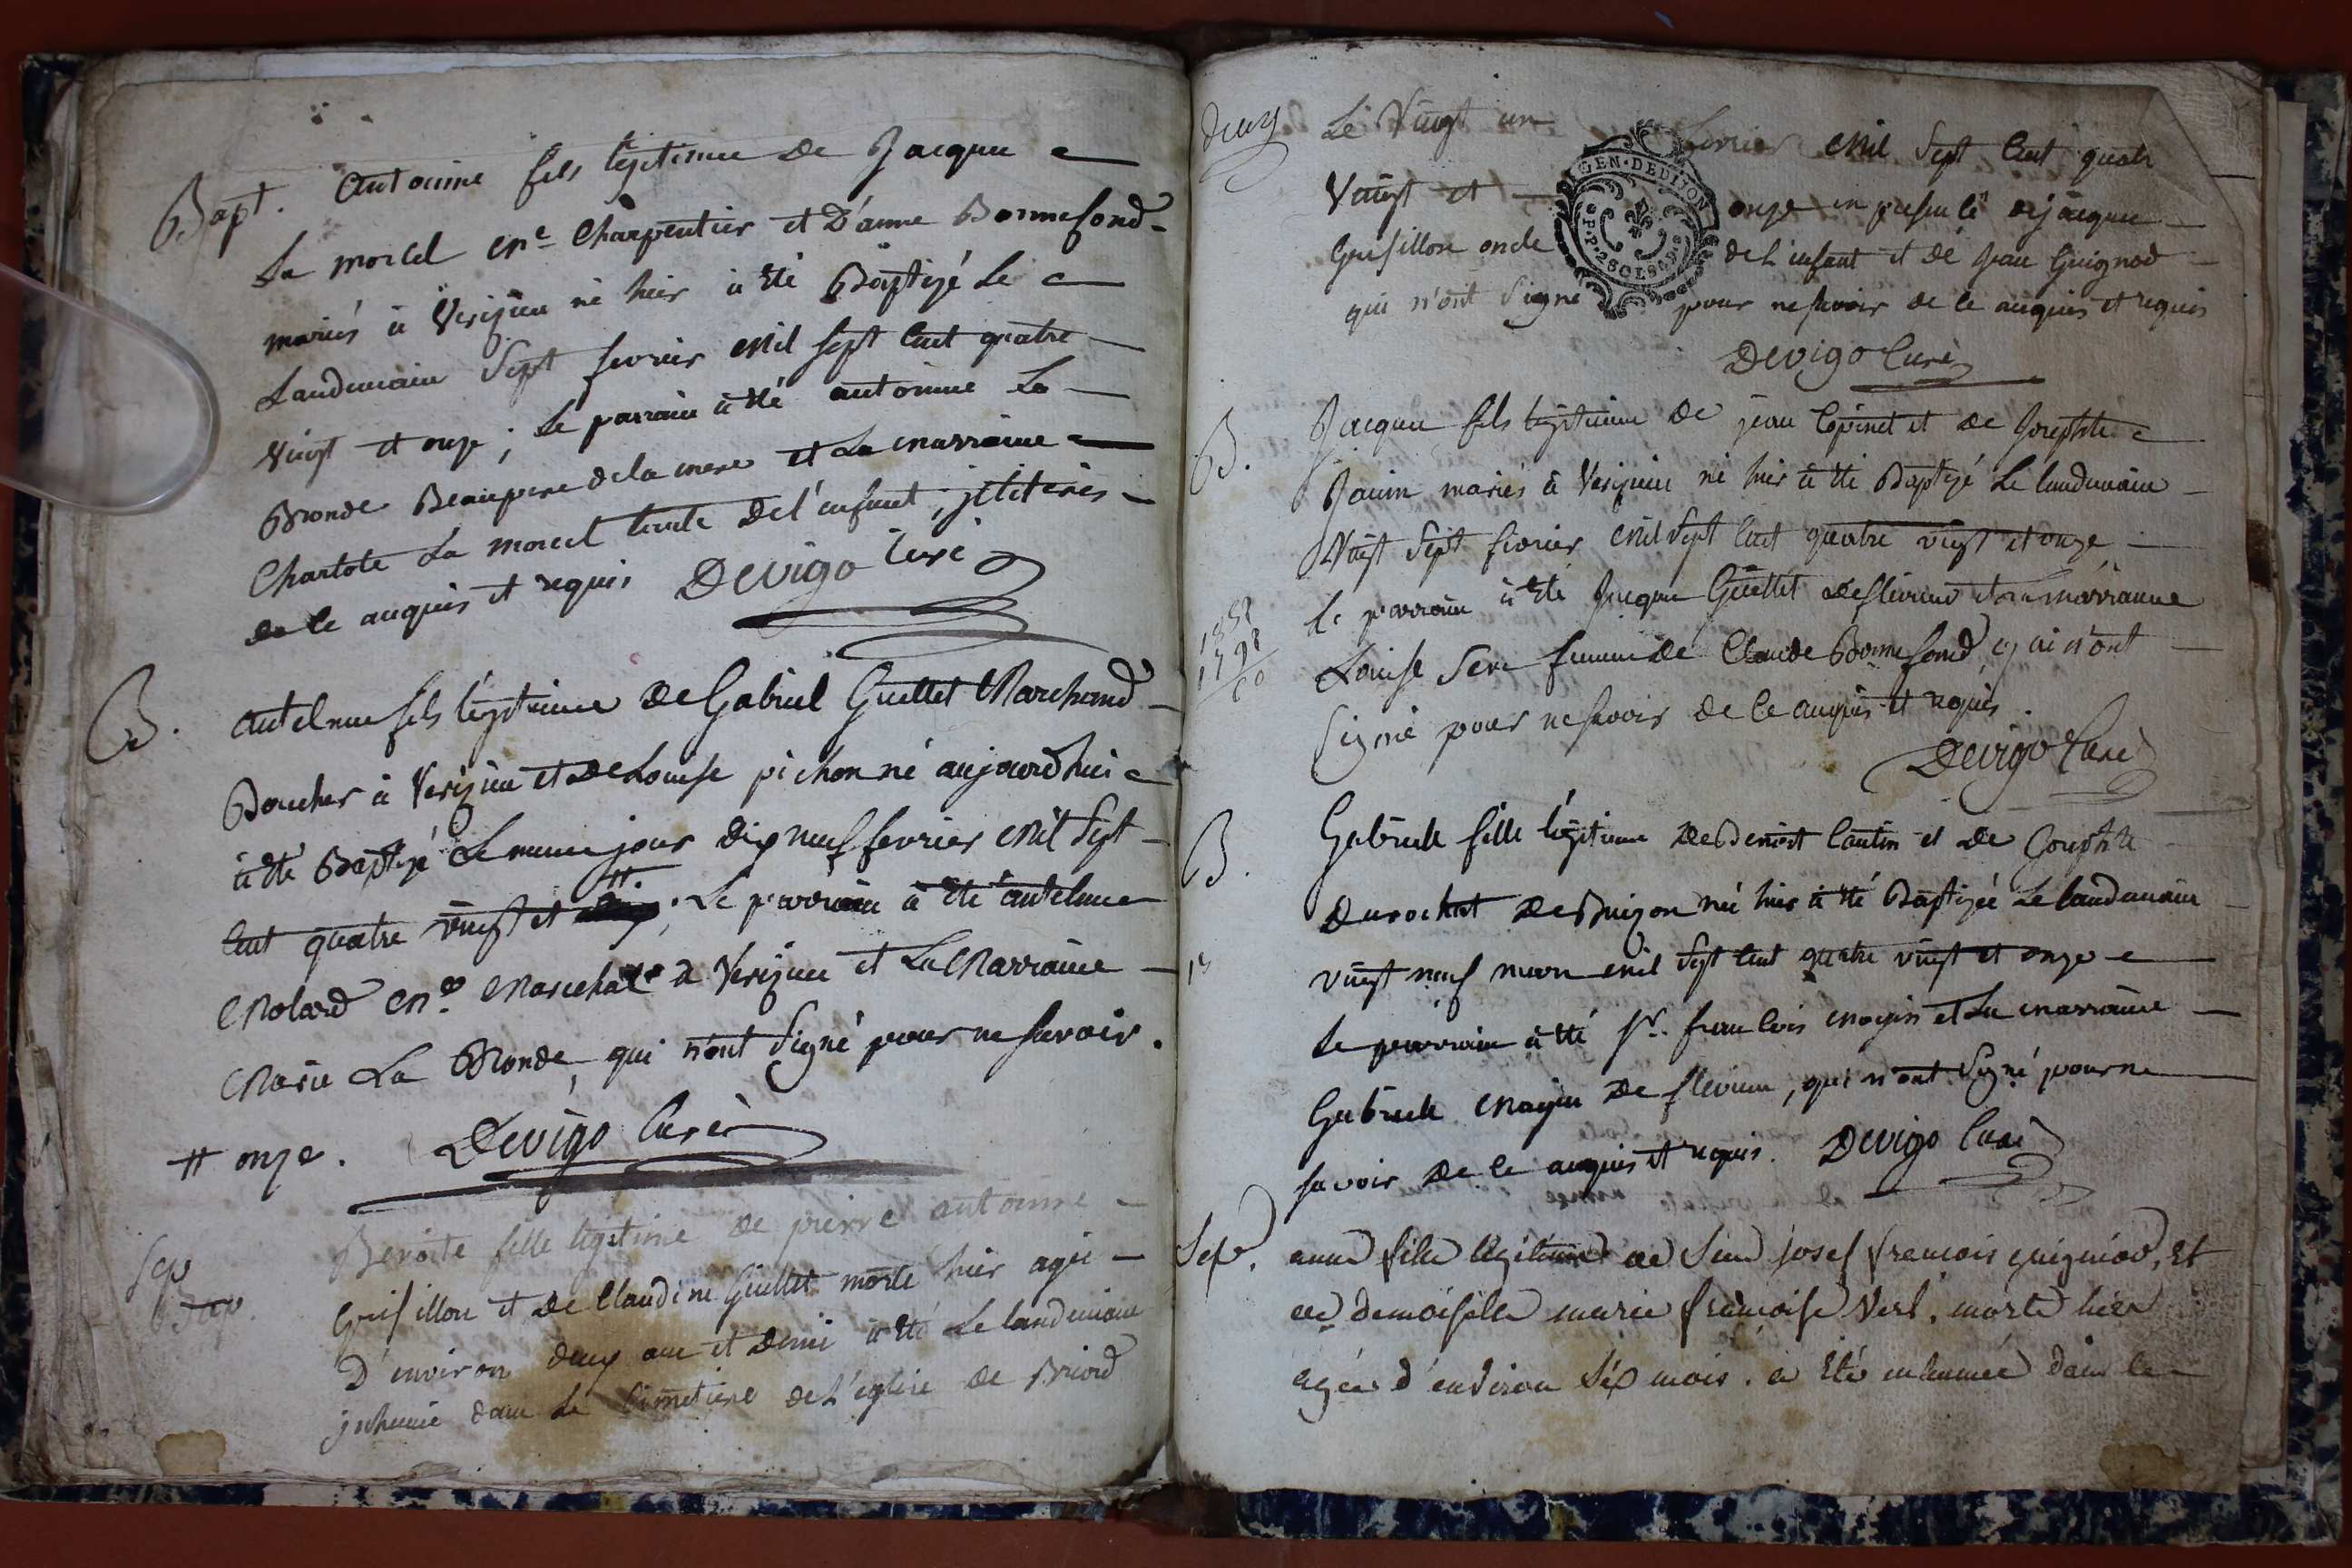 Bapt. Antoinne fils légitimue de Jacque
La morcel me charpentier et D'anne Bonnefond
mariés à Verizieu né hier à été Baptizé Le
Landemain Sept fevrier mil sept cent quatre
vingt et onze ; Le parrain à été antoinne La
Bronde Beaupere de la mere et La marraine
Charlote La morcel tante De l'enfant, jlliterés
de ce anquis et requis Devigo Curé
B. antelme fils légitimme De Gabriel Guettet Marchand
Boucher à Verizieu et de Louise pichon né aujourdhui
à été Baptizé Le meme jour dix neuf fevrier Mil Sept
Cent quatre vingt et # ; Le parrain à été antelme
Molard me Marechal à Verizieu et La Marraine
Marie La Bronde, qui n'ont Signé pour ne savoir.
# onze. Devigo Curé
Sep Benoite fille légitime de pierre antoinne
Grisillon et de Claudine Guillet morte hier agée
D'environ deux ans et Demi à été Le landemain
jnhumé dans Le Cimetiere de L'eglise de Briord
deux Le Vingt un fevrier Mil Sept Cent quatre
GEN. DE DIJON
Vingt et onze en presence de jacque
Grisillon oncle de L'enfant et dé Jean Guignod
qui n'ont Signe pour ne savoir de ce anquis et requis
Devigo Curé
B. Jacque fils légitimme De jean Copinet et de Josephte
Janin mariés à Verizieu né hier à été Baptizé Le landemain
Vingt Sept fevrier Mil Sept Cent quatre vingt et onze
Le parrain à été Jacque Guettet de flevieu et La marraine
1858
1798
60
Louise Sere femme de Claude Bonnefond qui n'ont
Signé pour ne savoir de Ce anquis et requis.
Devigo Curé
B. Gabriele fille légitime de Benoit Cantin et De Josephte
Durochat De Buizon née hier à été Baptizée Le landemain
vingt neuf mars mil Sept Cent quatre vingt et onze
Le parrain à été Sr. francois moyin et La marraine
Gabriele moyin De flevieu, qui n'ont Signé pour ne
savoir De Ce anquis et requis. Devigo Curé
Sep. anne fille légitime de Sieur josef francois guigniod, Et
de demoiselle marie francoise Vert. morte hier
agée d'environ six mois. a Eté inhumée dans le